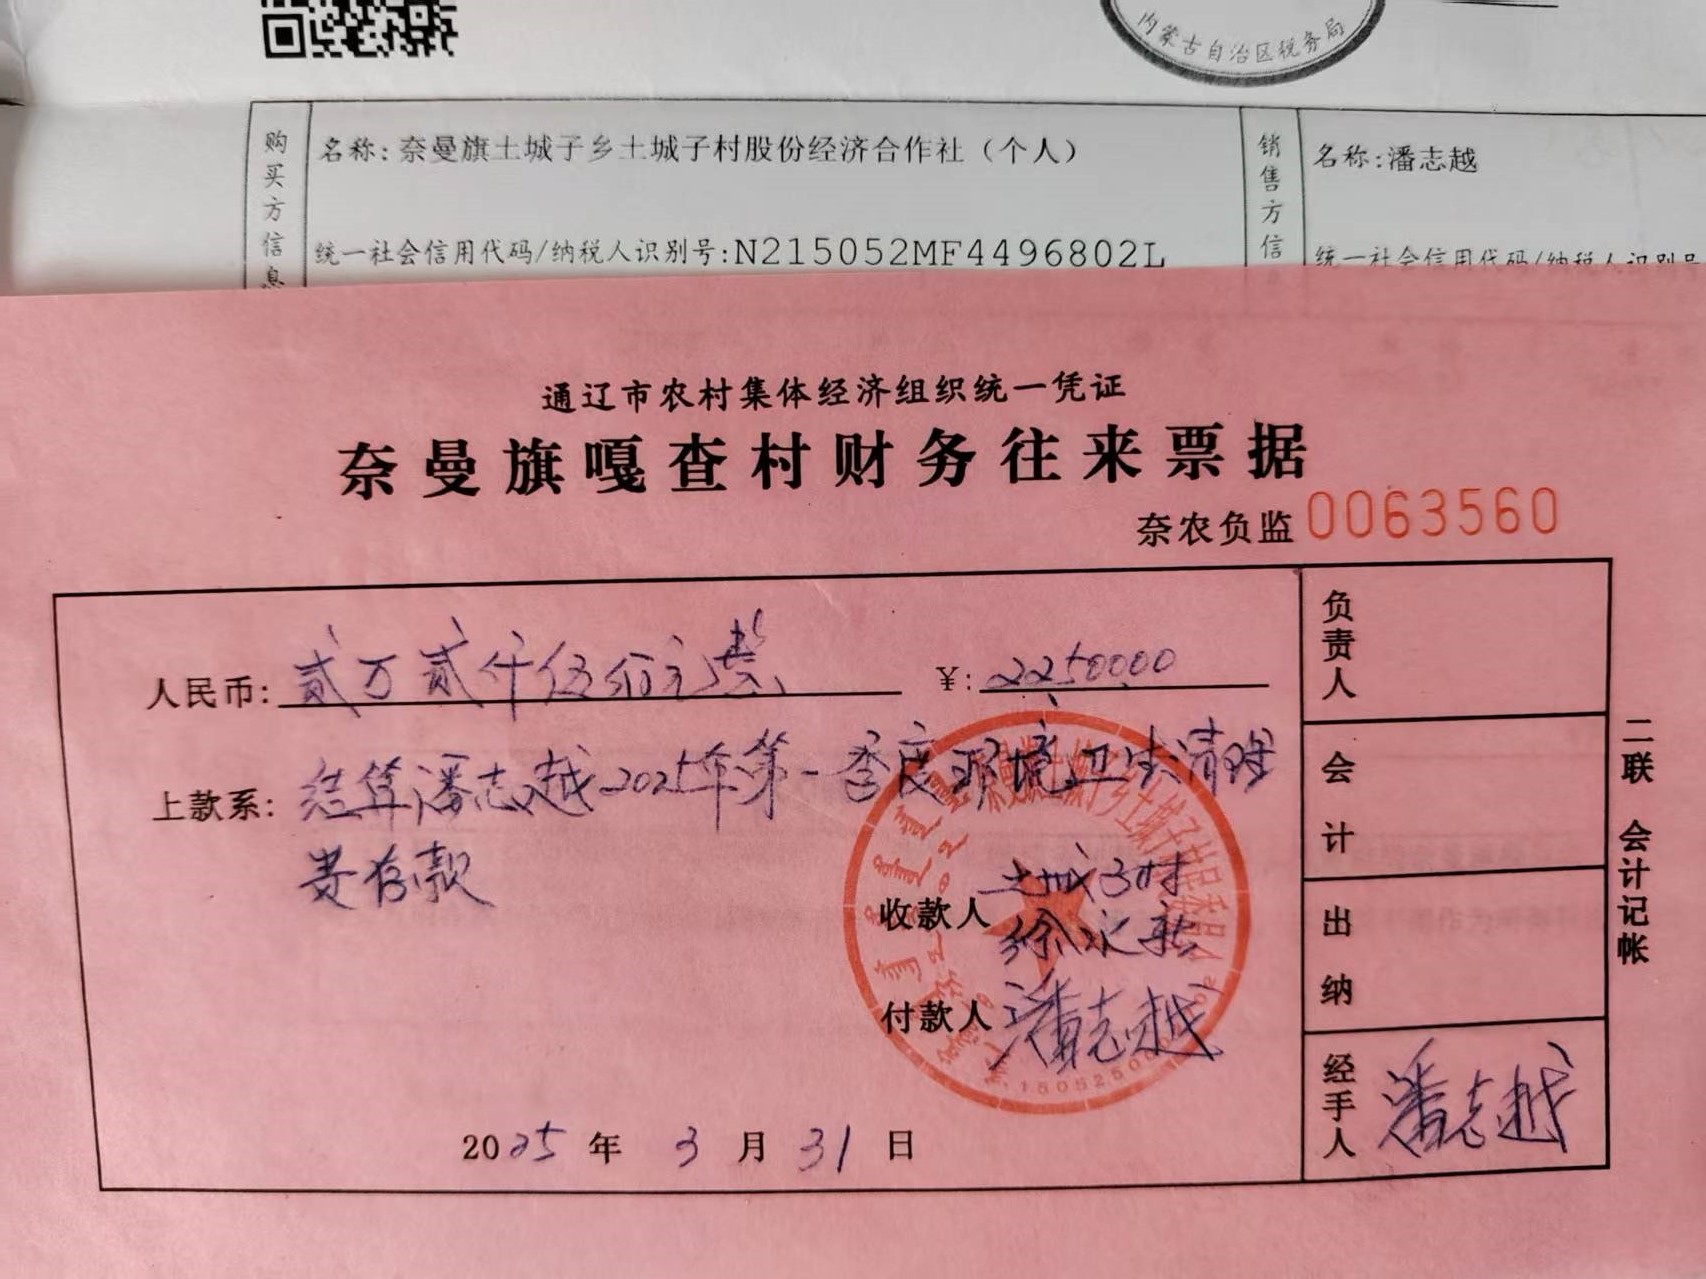 内蒙古自治区税务局
购买方信息
名称:奈曼旗土城子乡土城子村股份经济合作社（个人）
统一社会信用代码/纳税人识别号:N215052MF4496802L
销售方信
名称:潘志越
统一社会信用代码/纳税人识别号
通辽市农村集体经济组织统一凭证
奈曼旗嘎查村财务往来票据
奈农负监 0063560
人民币: 贰万贰仟伍佰元整
¥: 22500.00
上款系: 结算潘志越2025年第一季度环境卫生清理
费存款
收款人 土城子村
徐永新
付款人 潘志越
2025 年 3 月 31 日
负责人
会计
出纳
经手人 潘志越
二联 会计记帐